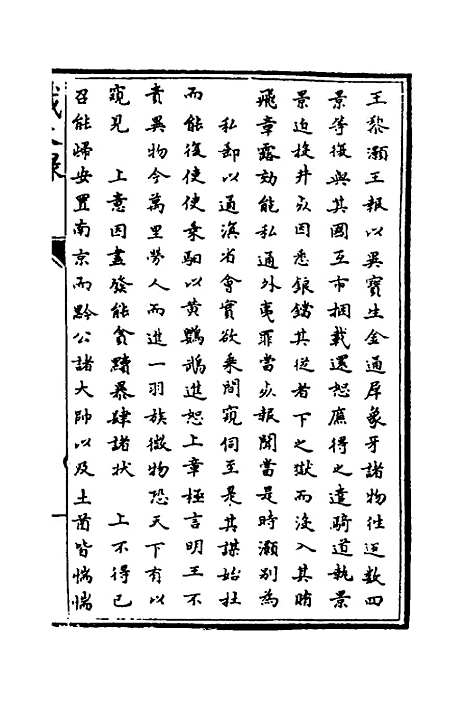 王黎灝王報以異寶生金通犀象牙諸物往返數四
景等復與其國互市捆載還恕廉得之遣騎道執景
景迫投井死因悉鋃鐺其從者下之獄而沒入其賄
飛章露劾能私通外夷罪當死報聞當是時灝別為
私郤以通滇省會實欲乘間窺伺至是其謀始杜
而能復使使乘馹以黃鸚鵡進恕上章極言明王不
貴異物今萬里勞人而進一羽族微物恐天下有以
窺見　上意因盡發能貪黷暴肆諸狀　上不得已
召能歸安置南京而黔公諸大帥以及土酋皆惴惴